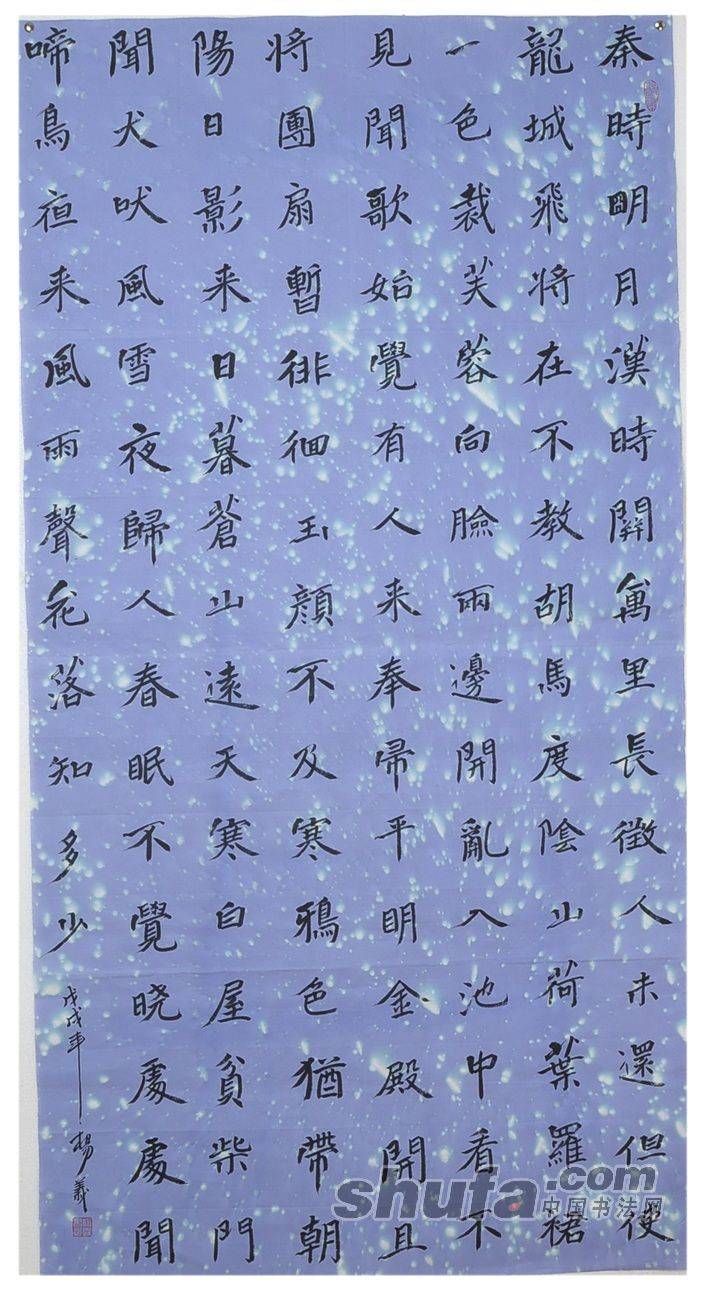 秦時眀月漢時關萬里長徵人未還但使
龍城飛將在不教胡馬度陰山荷葉羅裙
一色裁芙蓉向臉兩邊開亂入池中看不
見聞歌始覺有人来奉帚平明金殿開且
將團扇暫徘徊玉顏不及寒鴉色猶帶朝
陽日影来日暮蒼山遠天寒白屋貧柴門
聞犬吠風雪夜歸人春眠不覺晓處處聞
啼鳥夜来風雨聲花落知多少
戊戌年 楊義
shufa.com
中国书法网